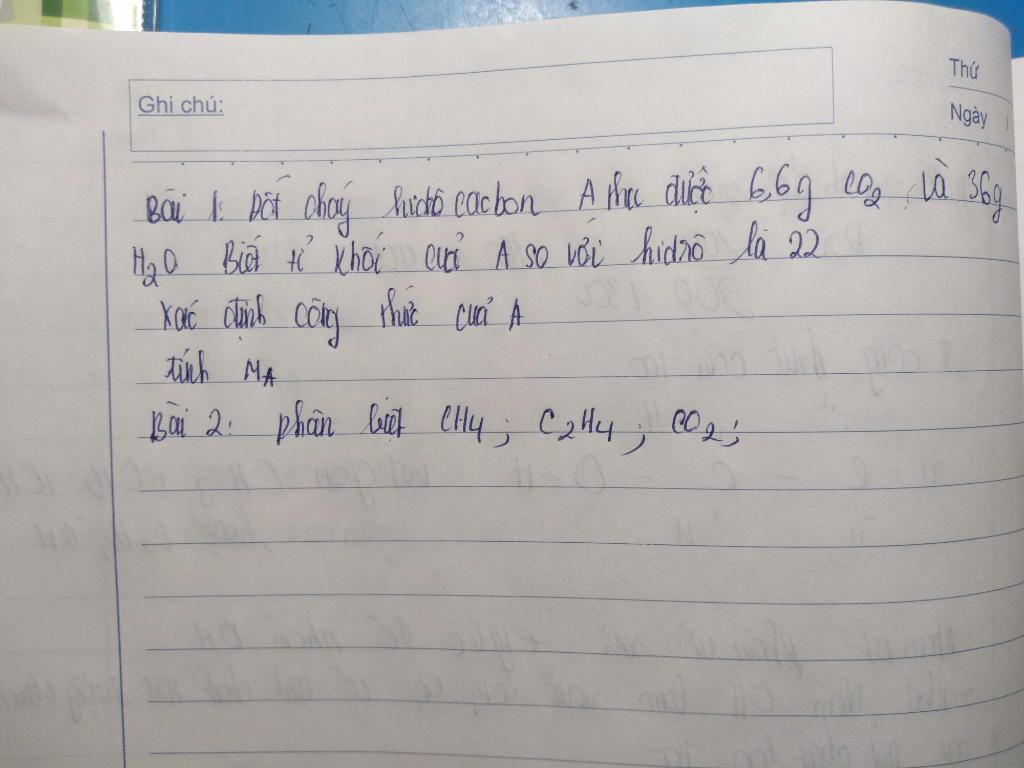 Thứ
Ghi chú:
Ngày
Bài 1: Đốt cháy hidrô cacbon A thu được 6,6g CO2 và 36g
H2O Biết tỉ khối của A so với hidrô là 22
Xác định công thức của A
tính MA
Bài 2: phân biệt CH4; C2H4; CO2;